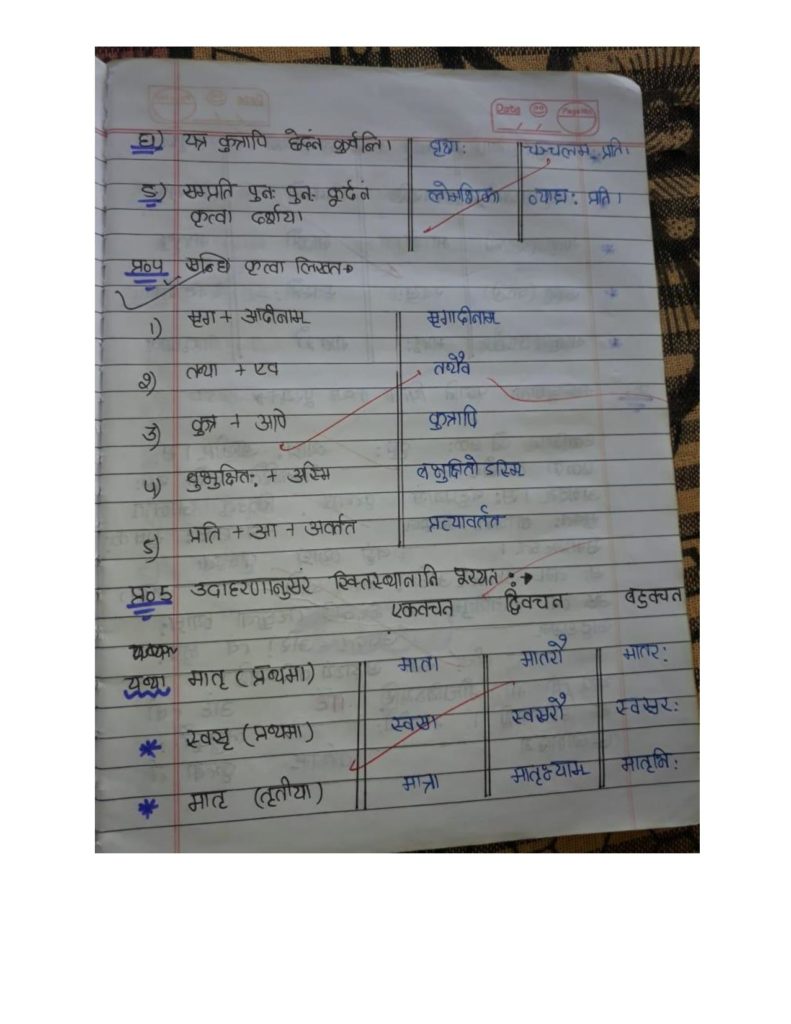 Date
Page No.
घ) यत्र कुत्रापि छेदनं कुर्वन्ति। वृक्षः चञ्चलम् प्रति।
ङ) सम्प्रति पुनः पुनः कूर्दनं लोमशिका व्याघ्रः प्रति।
कृत्वा दर्शय।
प्र०४ सन्धि कृत्वा लिखत→
1) मृग + आदीनाम् मृगादीनाम्
2) तथा + एव तथैव
3) कुत्र + अपि कुत्रापि
4) बुभुक्षितः + अस्मि बभुक्षितोऽस्मि
5) प्रति + आ + अवर्तत प्रत्यावर्तत
प्र०5 उदाहरणानुसरं रिक्तस्थानाति पूरयत :→
एकवचन द्विवचन बहुवचन
यथा मातृ (प्रथमा) माता मातरौ मातरः
* स्वसृ (प्रथमा) स्वसा स्वसरौ स्वसरः
* मातृ (तृतीया) मात्रा मातृभ्याम् मातृभिः